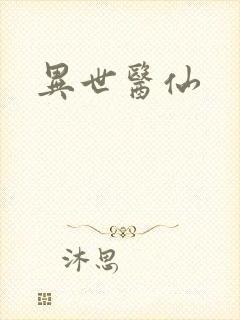 異世醫仙
沐思